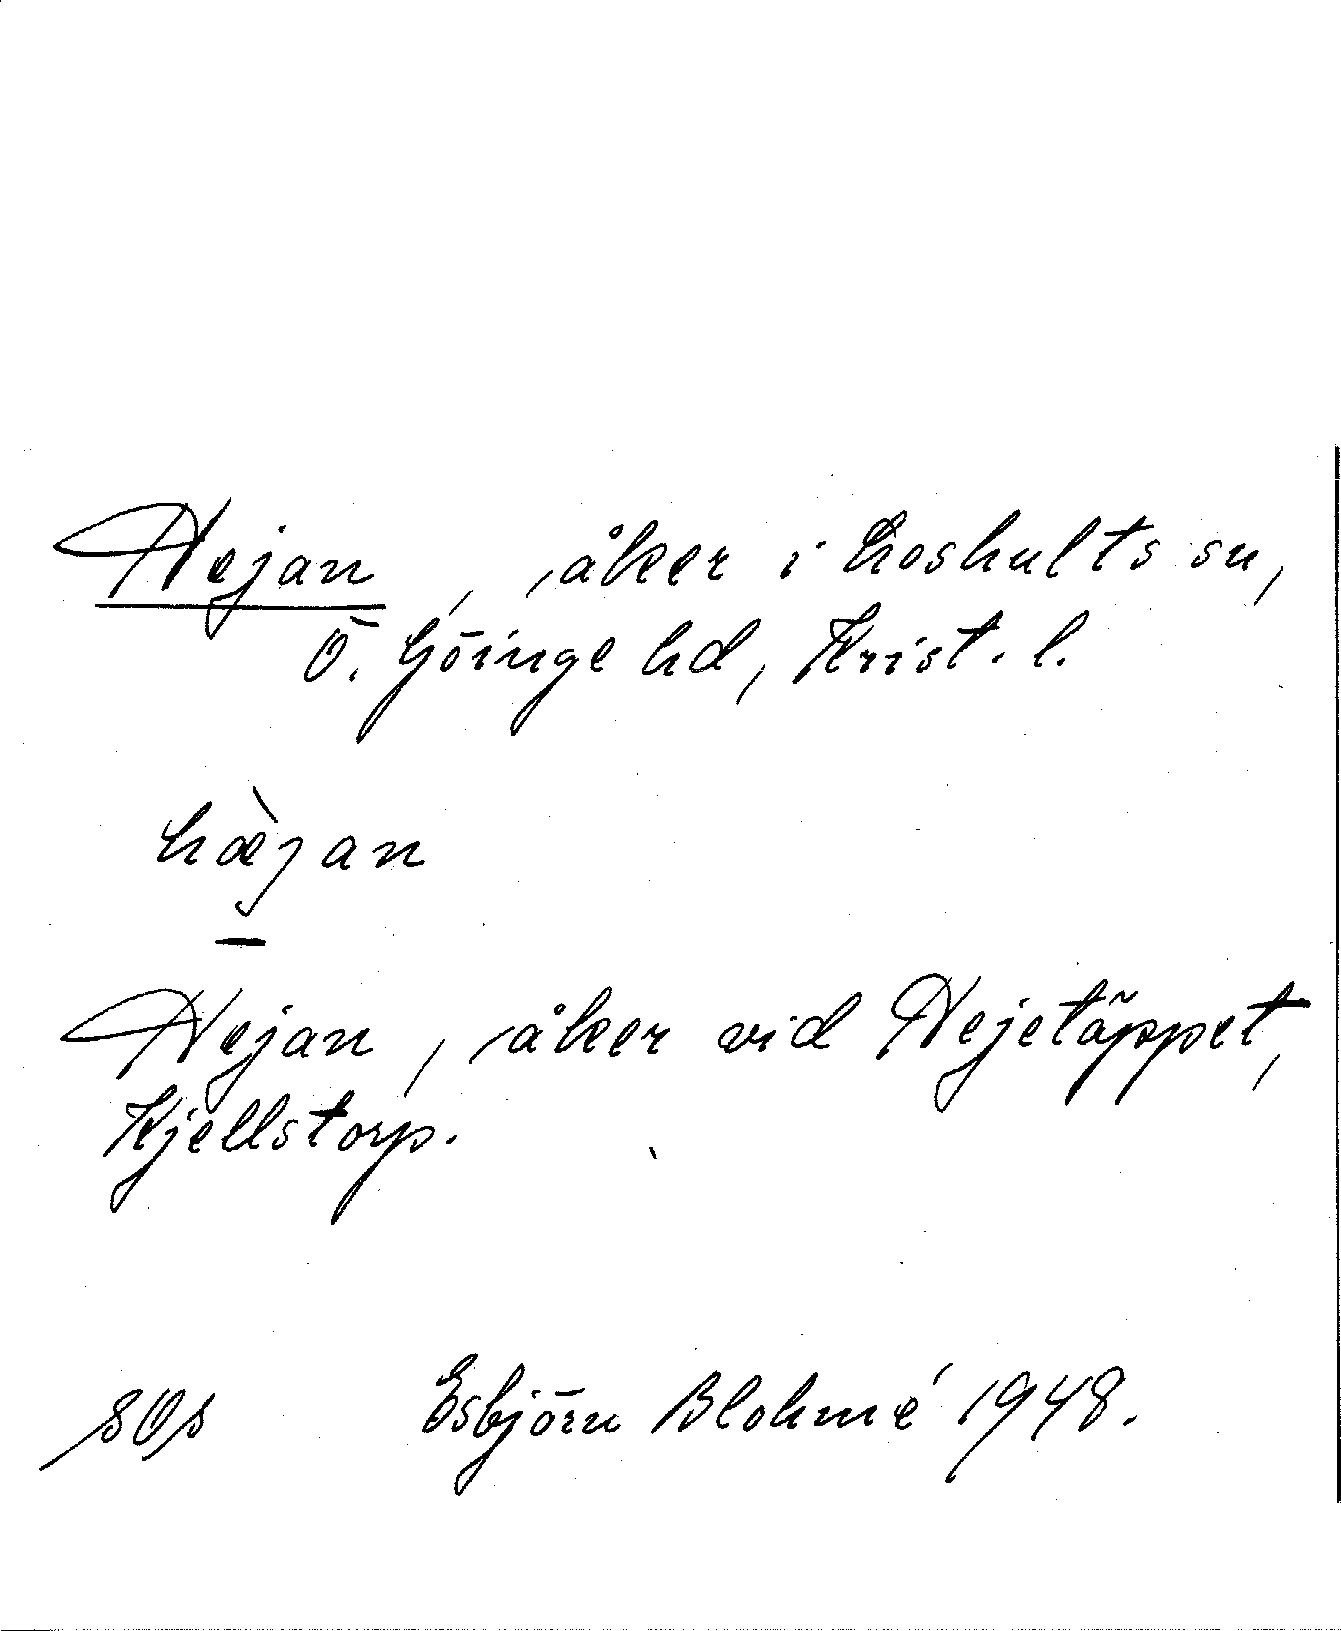 Hejan, åker i Loshults sn,
Ö. Göinge hd, Krist. l.
hæ̀jan
Hejan, åker vid Hejetäppet,
Kjellstorp.
Esbjörn Blohmé 1948.